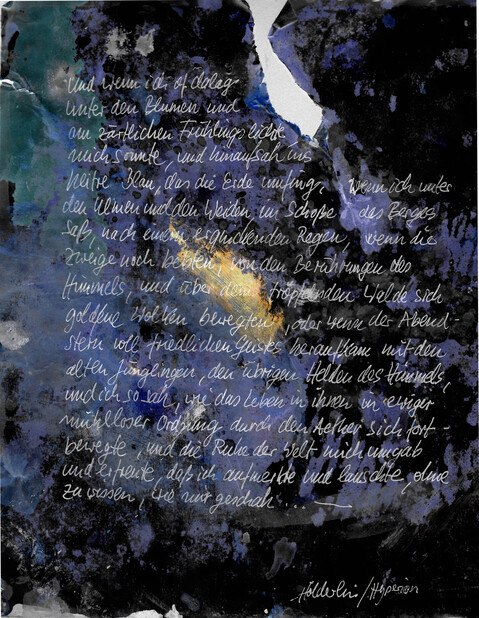 Und wenn ich oft dalag
unter den Blumen und
am zärtlichen Frühlingslichte
mich sonnte, und hinaufsah ins
heitre Blau, das die Erde umfing, wenn ich unter
den Ulmen und den Weiden, im Schoße des Berges
saß, nach einem erquickenden Regen, wenn die
Zweige noch bebten, von den Berührungen des
Himmels, und über dem tröpfenden Walde sich
goldene Wolken bewegten, oder wenn der Abend-
stern voll friedlichen Geistes heraufkam mit den
alten Jünglingen, den übrigen Helden des Himmels,
und ich so sah, wie das Leben in ihnen in ewiger
mühlloser Ordnung durch den Aether sich fort-
bewegte, und die Ruhe der Welt mich umgab
und erfreute, daß ich aufmerkte und lauschte, ohne
zu wissen, wie mir geschah . . . —
Hölderlin/Hyperion